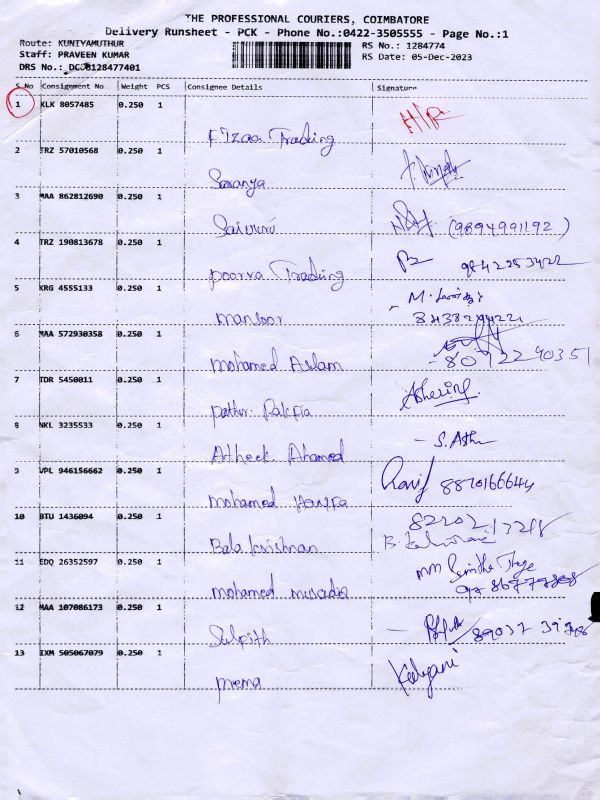 THE PROFESSIONAL COURIERS, COIMBATORE
Delivery Runsheet - PCK - Phone No.:0422-3505555 - Page No.:1
Route: KUNIYAMUTHUR
RS No.: 1284774
Staff: PRAVEEN KUMAR
RS Date: 05-Dec-2023
DRS No.:
S.No Consignment No Weight PCS Consignee Details Signature
1 KLK 8057485 0.250 1
Fizaa Trading
2 TRZ 57010568 0.250 1
Saranya
3 MAA 862812690 0.250 1
(9894991192)
4 TRZ 190813678 0.250 1
Poorva Trading
5 KRG 4555133 0.250 1
M.
Mansoor
6 MAA 572930358 0.250 1
Mohamed Aslam
7 TDR 5450011 0.250 1
8 NKL 3235533 0.250 1
Atheek Ahamed
9 VPL 946156662 0.250 1
8870166644
Mohamed
10 BTU 1436094 0.250 1
Bala Krishnan B.
11 EDQ 26352597 0.250 1
Mohamed
12 MAA 107086173 0.250 1
13 IXM 505067079 0.250 1
Kalyani
Prema